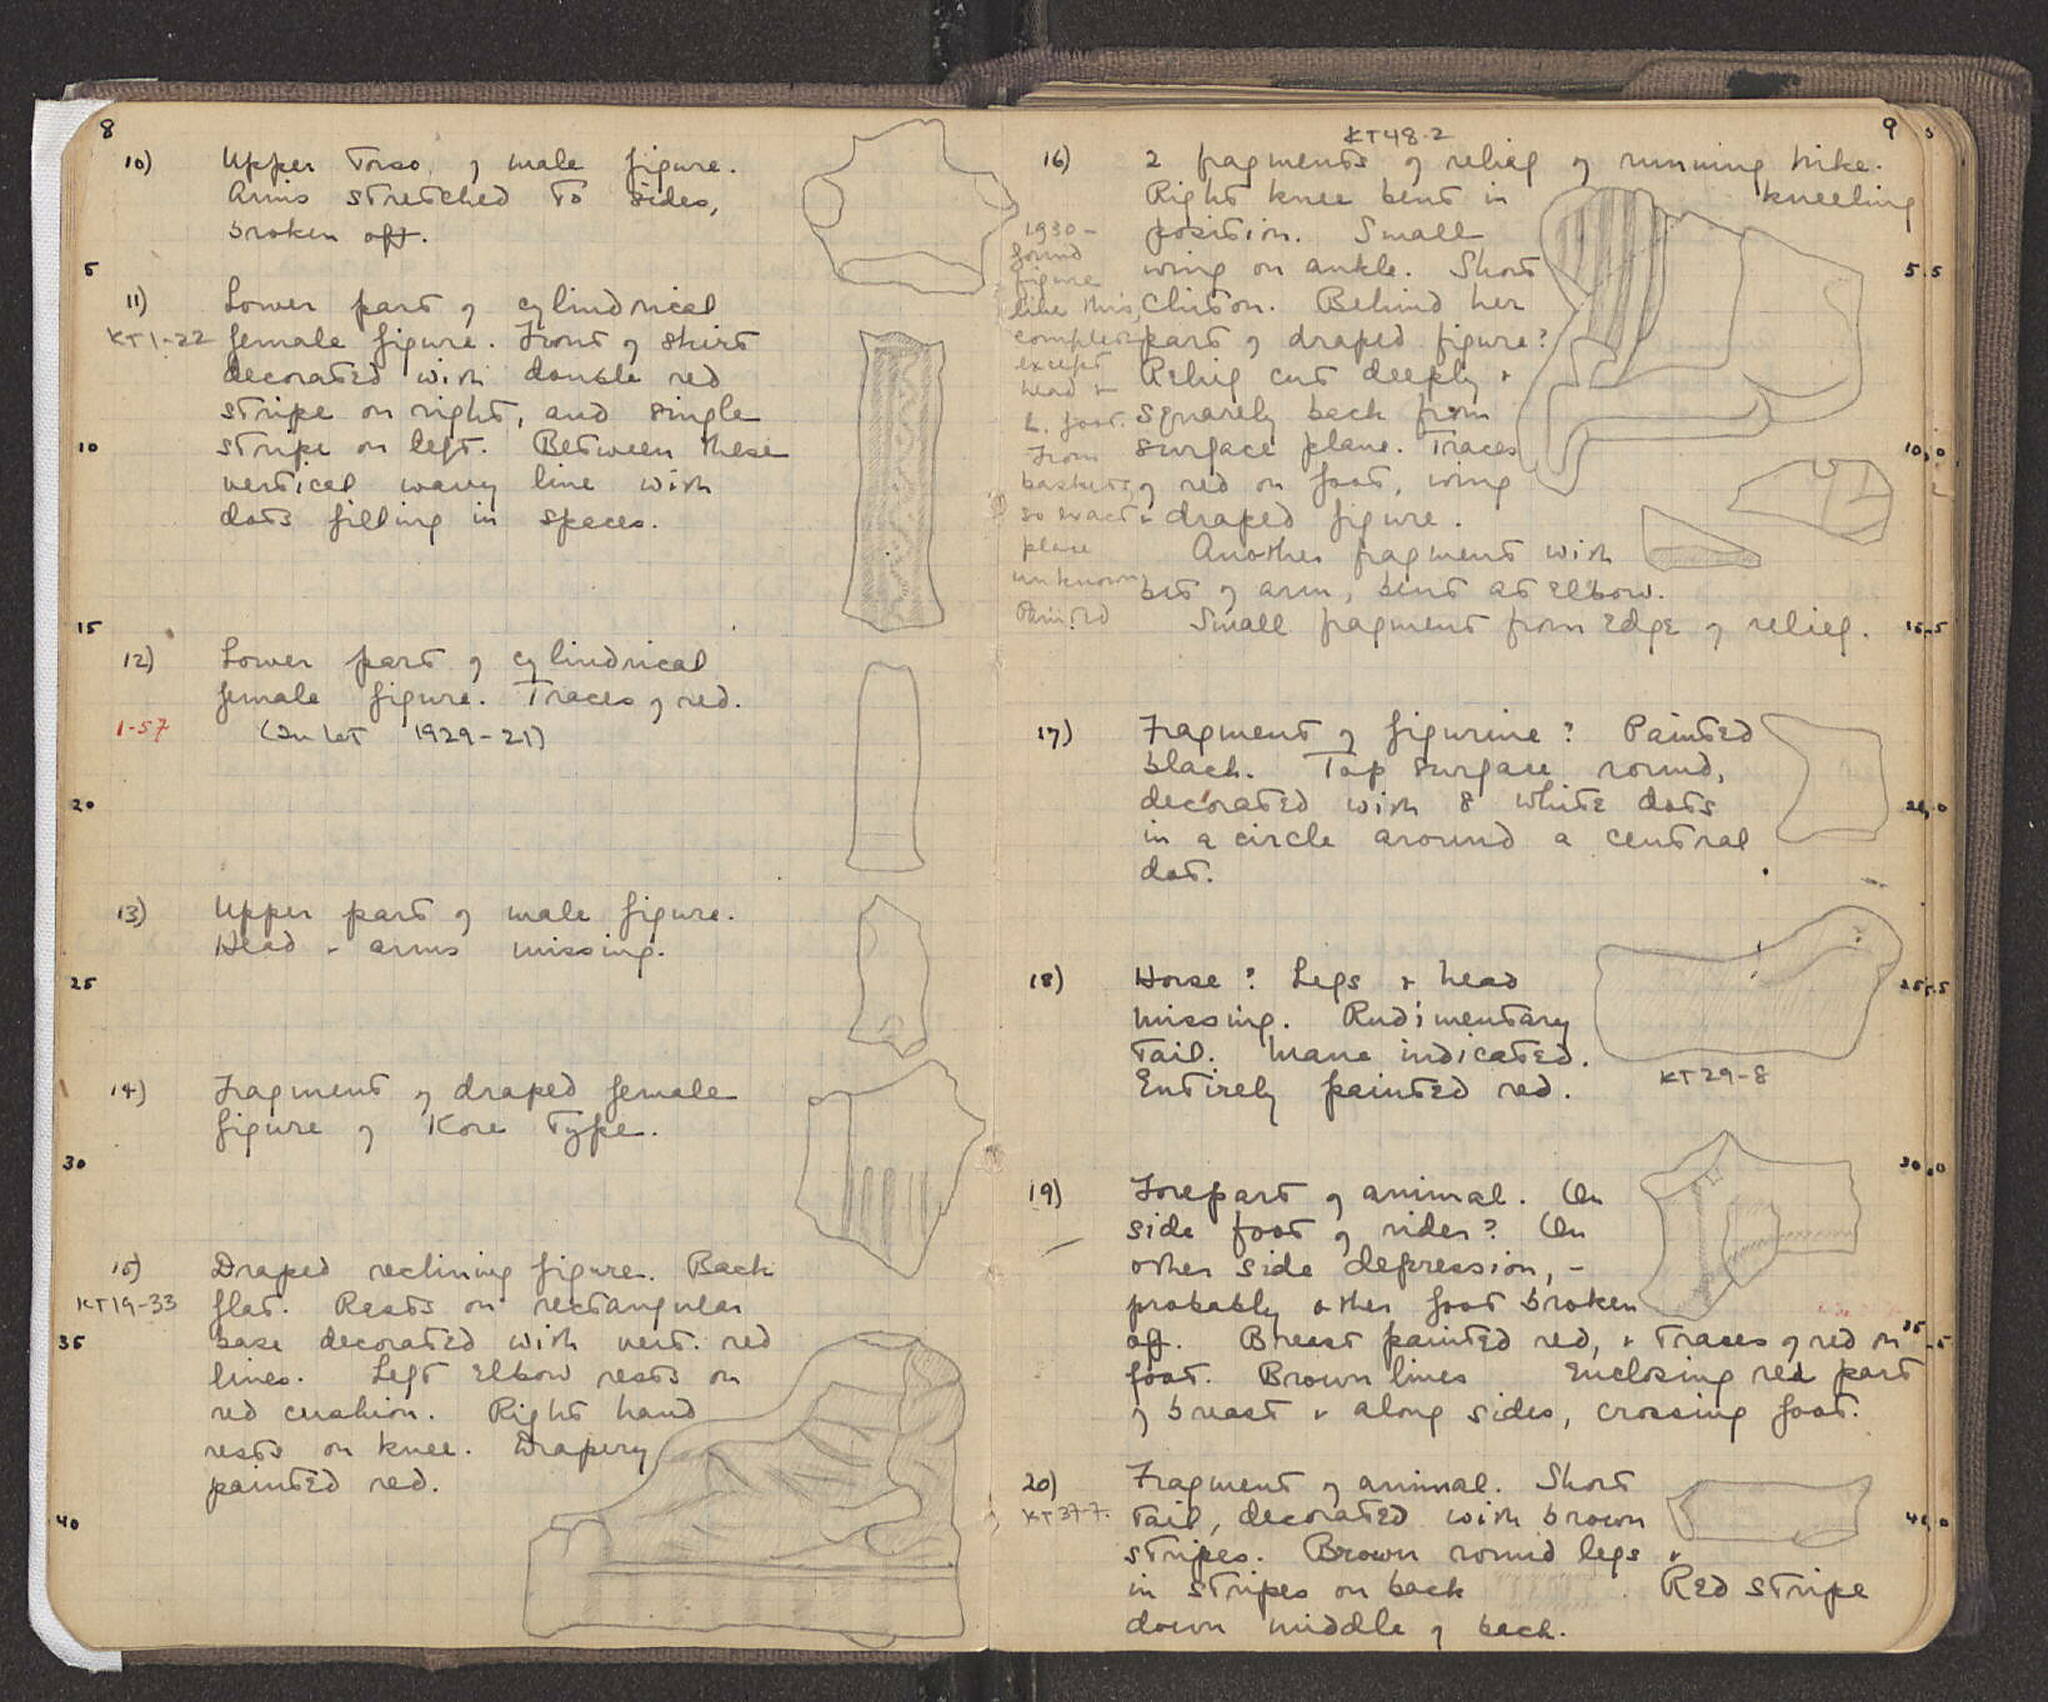 8
10) Upper Torso of male figure.
Arms stretched to sides,
broken off.
5
11) Lower part of cylindrical
KT1-22 female figure. Front of skirt
decorated with double red
stripe on right, and single
10 stripe on left. Between these
vertical wavy line with
dots filling in spaces.
15
12) Lower part of cylindrical
female figure. Traces of red.
1-57 (In lot 1929-21)
20
13) Upper part of male figure.
Head + arms missing.
25
14) Fragment of draped female
figure of Kore Type.
30
15) Draped reclining figure. Back
KT19-33 flat. Rests on rectangular
35 base decorated with vert. red
lines. Left elbow rests on
red cushion. Right hand
rests on knee. Drapery
painted red.
40
KT48-2
9
16) 2 fragments of relief of running Nike.
Right knee bent in kneeling
position. Small
wing on ankle. Short
Chiton. Behind her
part of draped figure?
Relief cut deeply +
squarely back from
surface plane. Traces
of red on foot, wing
+ draped figure.
Another fragment with
bit of arm, bent at elbow.
Small fragment from edge of relief.
1930-
found
figure
like this,
complete
except
head +
L. foot.
From
baskets,
so exact
place
unknown
Painted
17) Fragment of figurine? Painted
black. Top surface round,
decorated with 8 white dots
in a circle around a central
dot.
18) Horse? Legs + head
missing. Rudimentary
tail. Mane indicated.
Entirely painted red.
KT29-8
19) Forepart of animal. On
side foot of rider? On
other side depression, -
probably other foot broken
off. Breast painted red, + traces of red on
foot. Brown lines enclosing red part
of breast + along sides, crossing foot.
20) Fragment of animal. Short
KT37-7. tail, decorated with brown
stripes. Brown round legs +
in stripes on back. Red stripe
down middle of back.